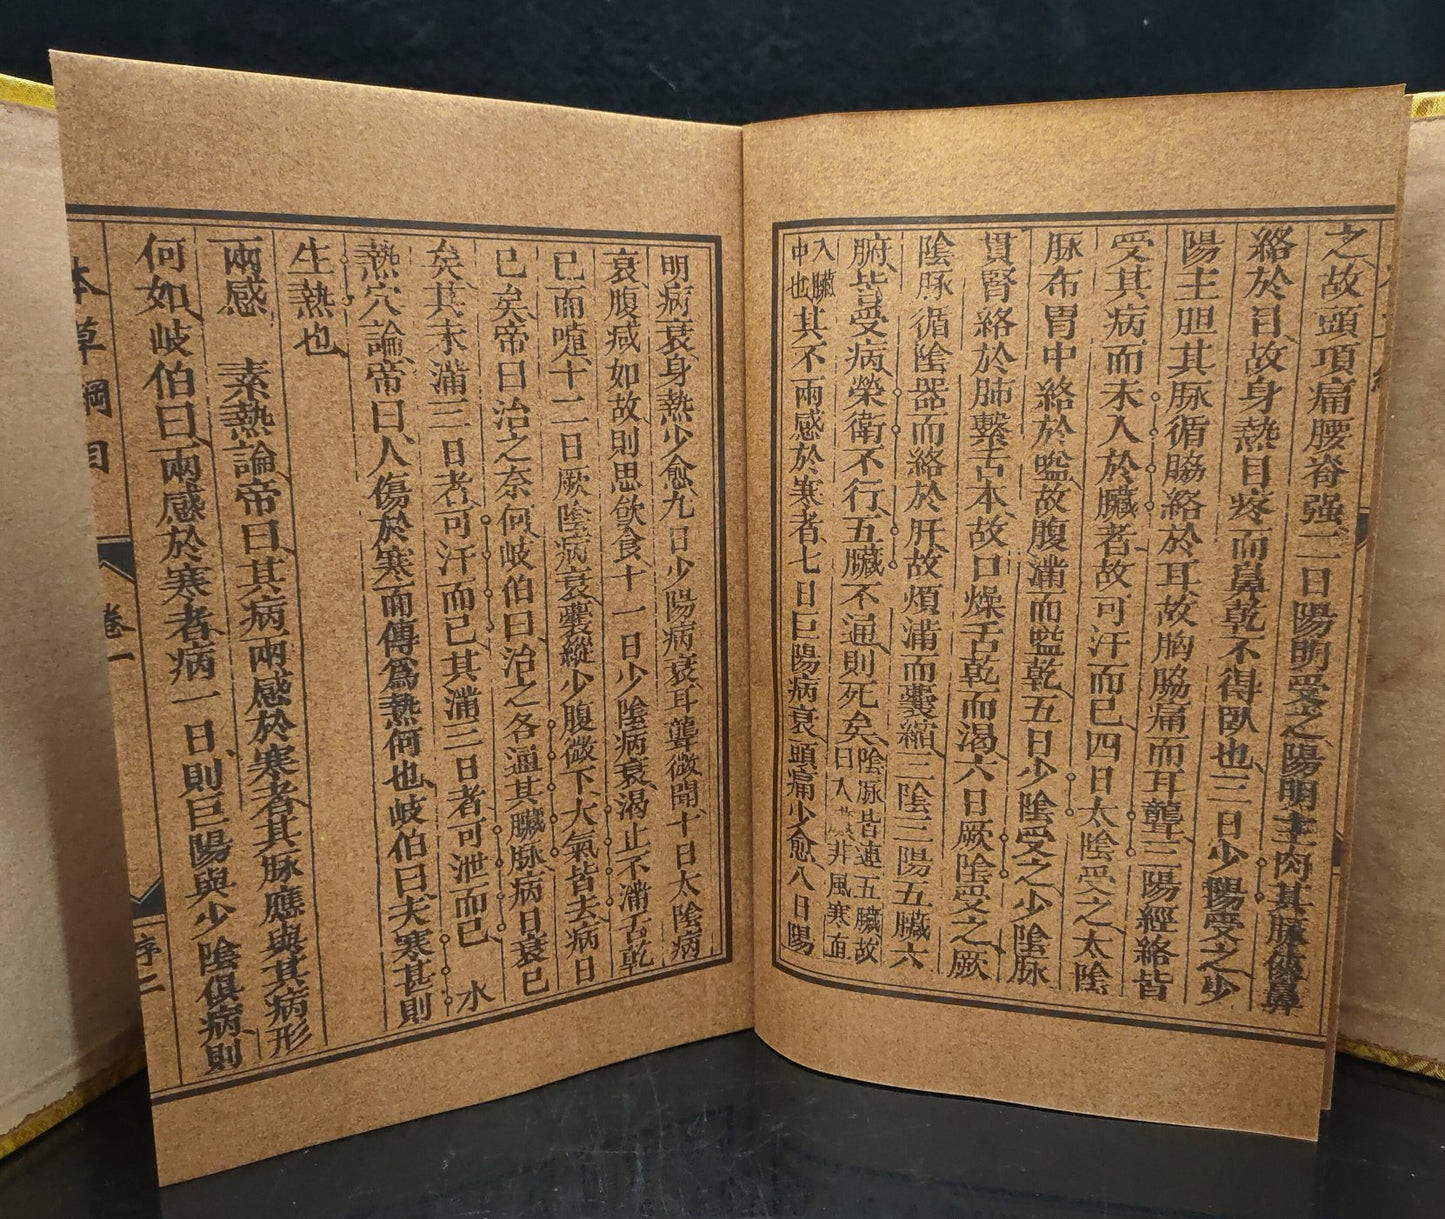 之故頭項痛腰脊强二日陽明受之陽明主肉其脉俠鼻
絡於目故身熱目疼而鼻乾不得臥也三日少陽受之少
陽主胆其脉循脇絡於耳故胸脇痛而耳聾三陽經絡皆
受其病而未入於臟者故可汗而已四日太陰受之太陰
脉布胃中絡於嗌故腹滿而嗌乾五日少陰受之少陰脉
貫腎絡於肺繫舌本故口燥舌乾而渴六日厥陰受之厥
陰脉循陰器而絡於肝故煩滿而囊縮三陰三陽五臟六
腑皆受病榮衛不行五臟不通則死矣陰脉皆連五臟故
日人 非風寒面
入臟
中也其不兩感於寒者七日巨陽病衰頭痛少愈八日陽
明病衰身熱少愈九日少陽病衰耳聾微聞十日太陰病
衰腹减如故則思飲食十一日少陰病衰渴止不滿舌乾
已而嚏十二日厥陰病衰囊縱少腹微下大氣皆去病日
已矣帝曰治之奈何岐伯曰治之各通其臟脉病日衰已
矣其未滿三日者可汗而已其滿三日者可泄而已 水
熱穴論帝曰人傷於寒而傳爲熱何也岐伯曰夫寒甚則
生熱也
兩感 素熱論帝曰其病兩感於寒者其脉應與其病形
何如岐伯曰兩感於寒者病一日則巨陽與少陰俱病則
本草綱目 卷一 序二